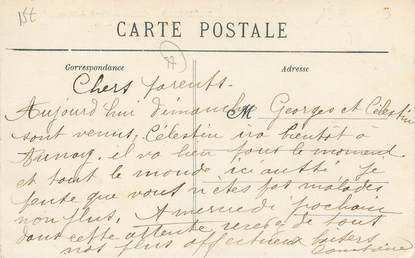 15t
CARTE POSTALE
77
Correspondance
Adresse
Chers parents.
Aujourd'hui dimanche M Georges et Célestin
sont venus, Célestin ira bientôt à
Aunay, il va bien pour le moment
et tout le monde ici aussi je
pense que vous n'êtes pas malades
non plus. A mercredi prochain
dans cette attente recevez de tout
nos plus affectueux baisers